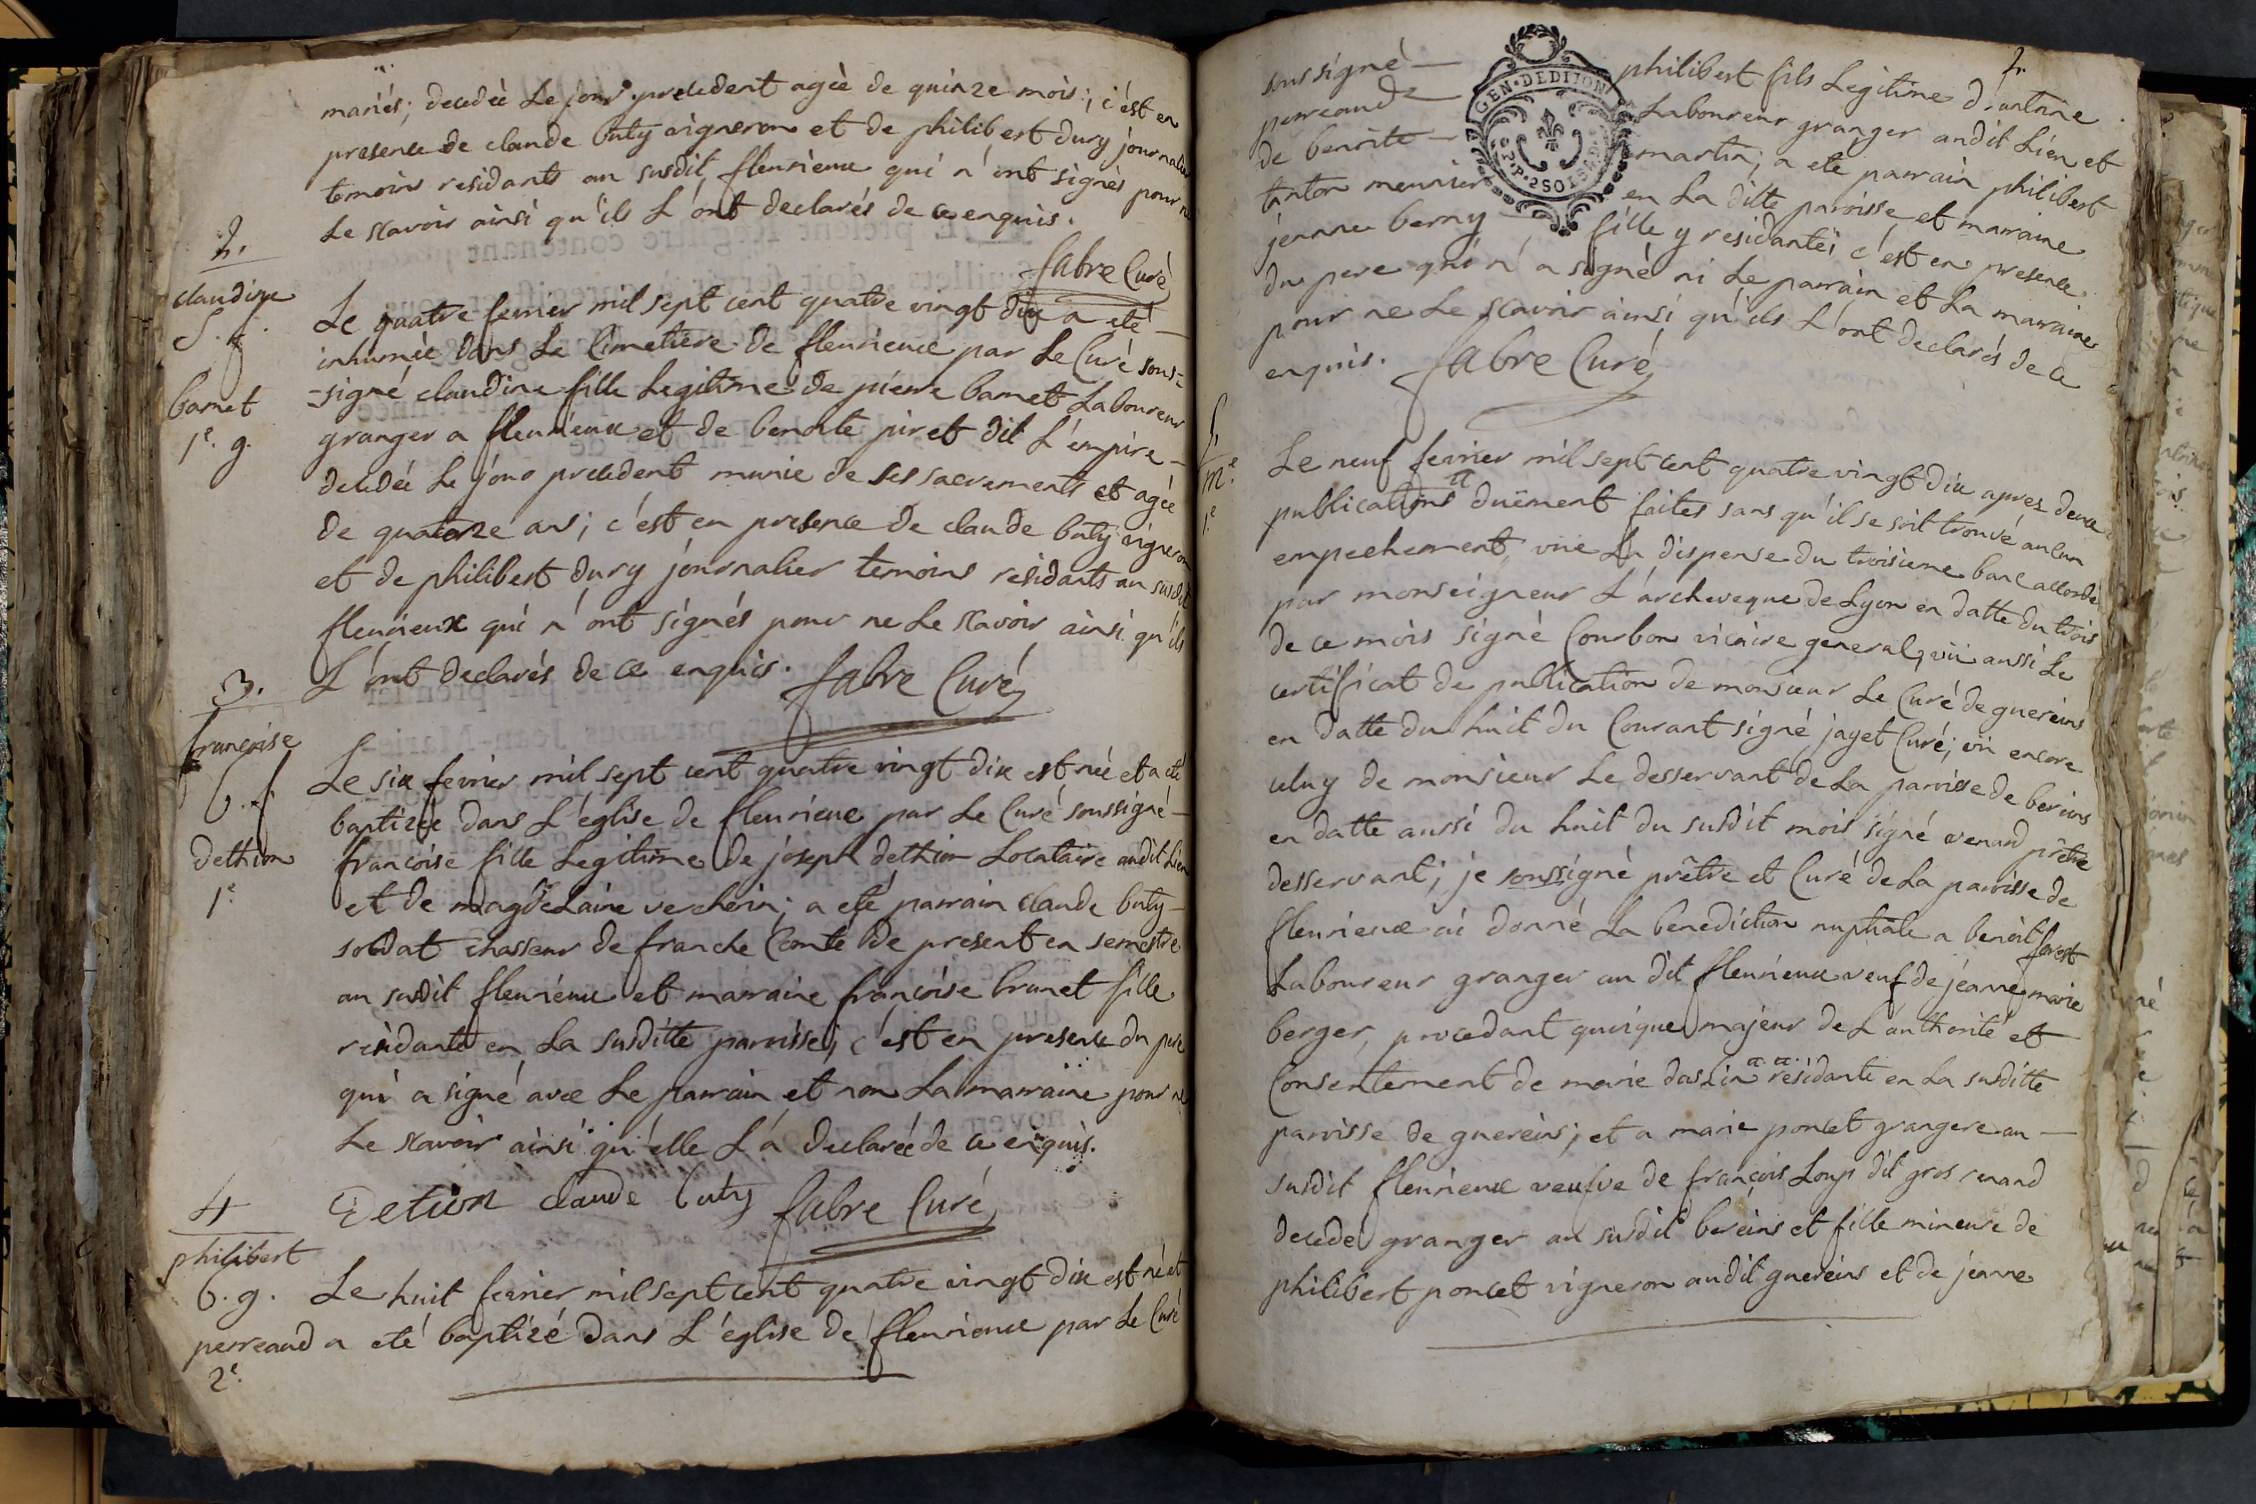 mariés; decedée Le jour precedent agée de quinze mois; c'est en
presence de claude buty vigneron et de philibert dury journalier
temoins residants au susdit fleurieux qui n'ont signés pour ne
Le scavoir ainsi qu'ils L'ont declarés de ce enquis.
fabre Curé
2.
claudine
S. f.
barnet
1e. g.
Le quatre fevrier mil sept cent quatre vingt dix a eté
inhumée dans Le Cimetiere de fleurieux par Le Curé sous=
-signé claudine fille Legitime de pierre barnet Laboureur
granger a fleurieux et de benoite piret dit L'empire
decedée Le jour precedent munie de ses sacrements et agée
de quatorze ans; c'est en presence de claude buty vigneron
et de philibert dury journalier temoins residants au susdit
fleurieux qui n'ont signés pour ne Le scavoir ainsi qu'ils
L'ont declarés de ce enquis. fabre Curé
3.
francoise
b. f.
dethion
1e.
Le six fevrier mil sept cent quatre vingt dix est née et a eté
baptizée dans L'église de fleurieux par Le Curé soussigné
francoise fille Legitime de joseph dethion Locataire audit Lieu
et de magdeLaine vercherin; a eté parrain claude buty
soldat chasseur de franche Comté de present en semestre
au susdit fleurieux et marraine francoise brunet fille
residante en La susditte parroisse; c'est en presence du pere
qui a signé avec Le parrain et non La marraine pour ne
Le scavoir ainsi qu'elle L'a declarée de ce enquis.
Detion claude buty fabre Curé
4
philibert
b. g.
perreaud
2e.
Le huit fevrier mil sept cent quatre vingt dix est né et
a eté baptizé dans L'église de fleurieux par Le Curé
2.
soussigné philibert fils Legitime d'antoine
perreaud Laboureur granger audit Lieu et
de benoite martin; a eté parrain philibert
tanton meunier en La ditte paroisse et marraine
jeanne berny fille y residante; c'est en presence
du pere qui n'a signé ni Le parrain et La marraine
pour ne Le scavoir ainsi qu'ils L'ont declarés de ce
enquis. fabre Curé
GEN·DEDIJON
P·P·2SOLS
5.
me.
1e
Le neuf fevrier mil sept cent quatre vingt dix aprez deux
publications duëment faites sans qu'il se soit trouvé aucun
empechement, vüe La dispense du troisieme banc accordé
par monseigneur L'archeveque de Lyon en datte du trois
de ce mois signé Courbon vicaire general, vû aussi Le
certificat de publication de monsieur Le Curé de guereins
en datte du huit du Courant signé jayet Curé; vû encore
celuy de monsieur Le desservant de La paroisse de bereins
en datte aussi du huit du susdit mois signé venard prêtre
desservant; je soussigné prêtre et Curé de La paroisse de
fleurieux ai donné La benediction nuptiale a benoit forest
Laboureur granger au dit fleurieux veuf de jeanne marie
berger, procedant quoique majeur de L'authorité et
Consentement de marie dasLin residante en La susditte
paroisse de guereins; et a marie poncet grangere au
susdit fleurieux veufve de françois Loup dit gros renard
decedé granger au susdit bereins et fille mineure de
philibert poncet vigneron audit guereins et de jeanne